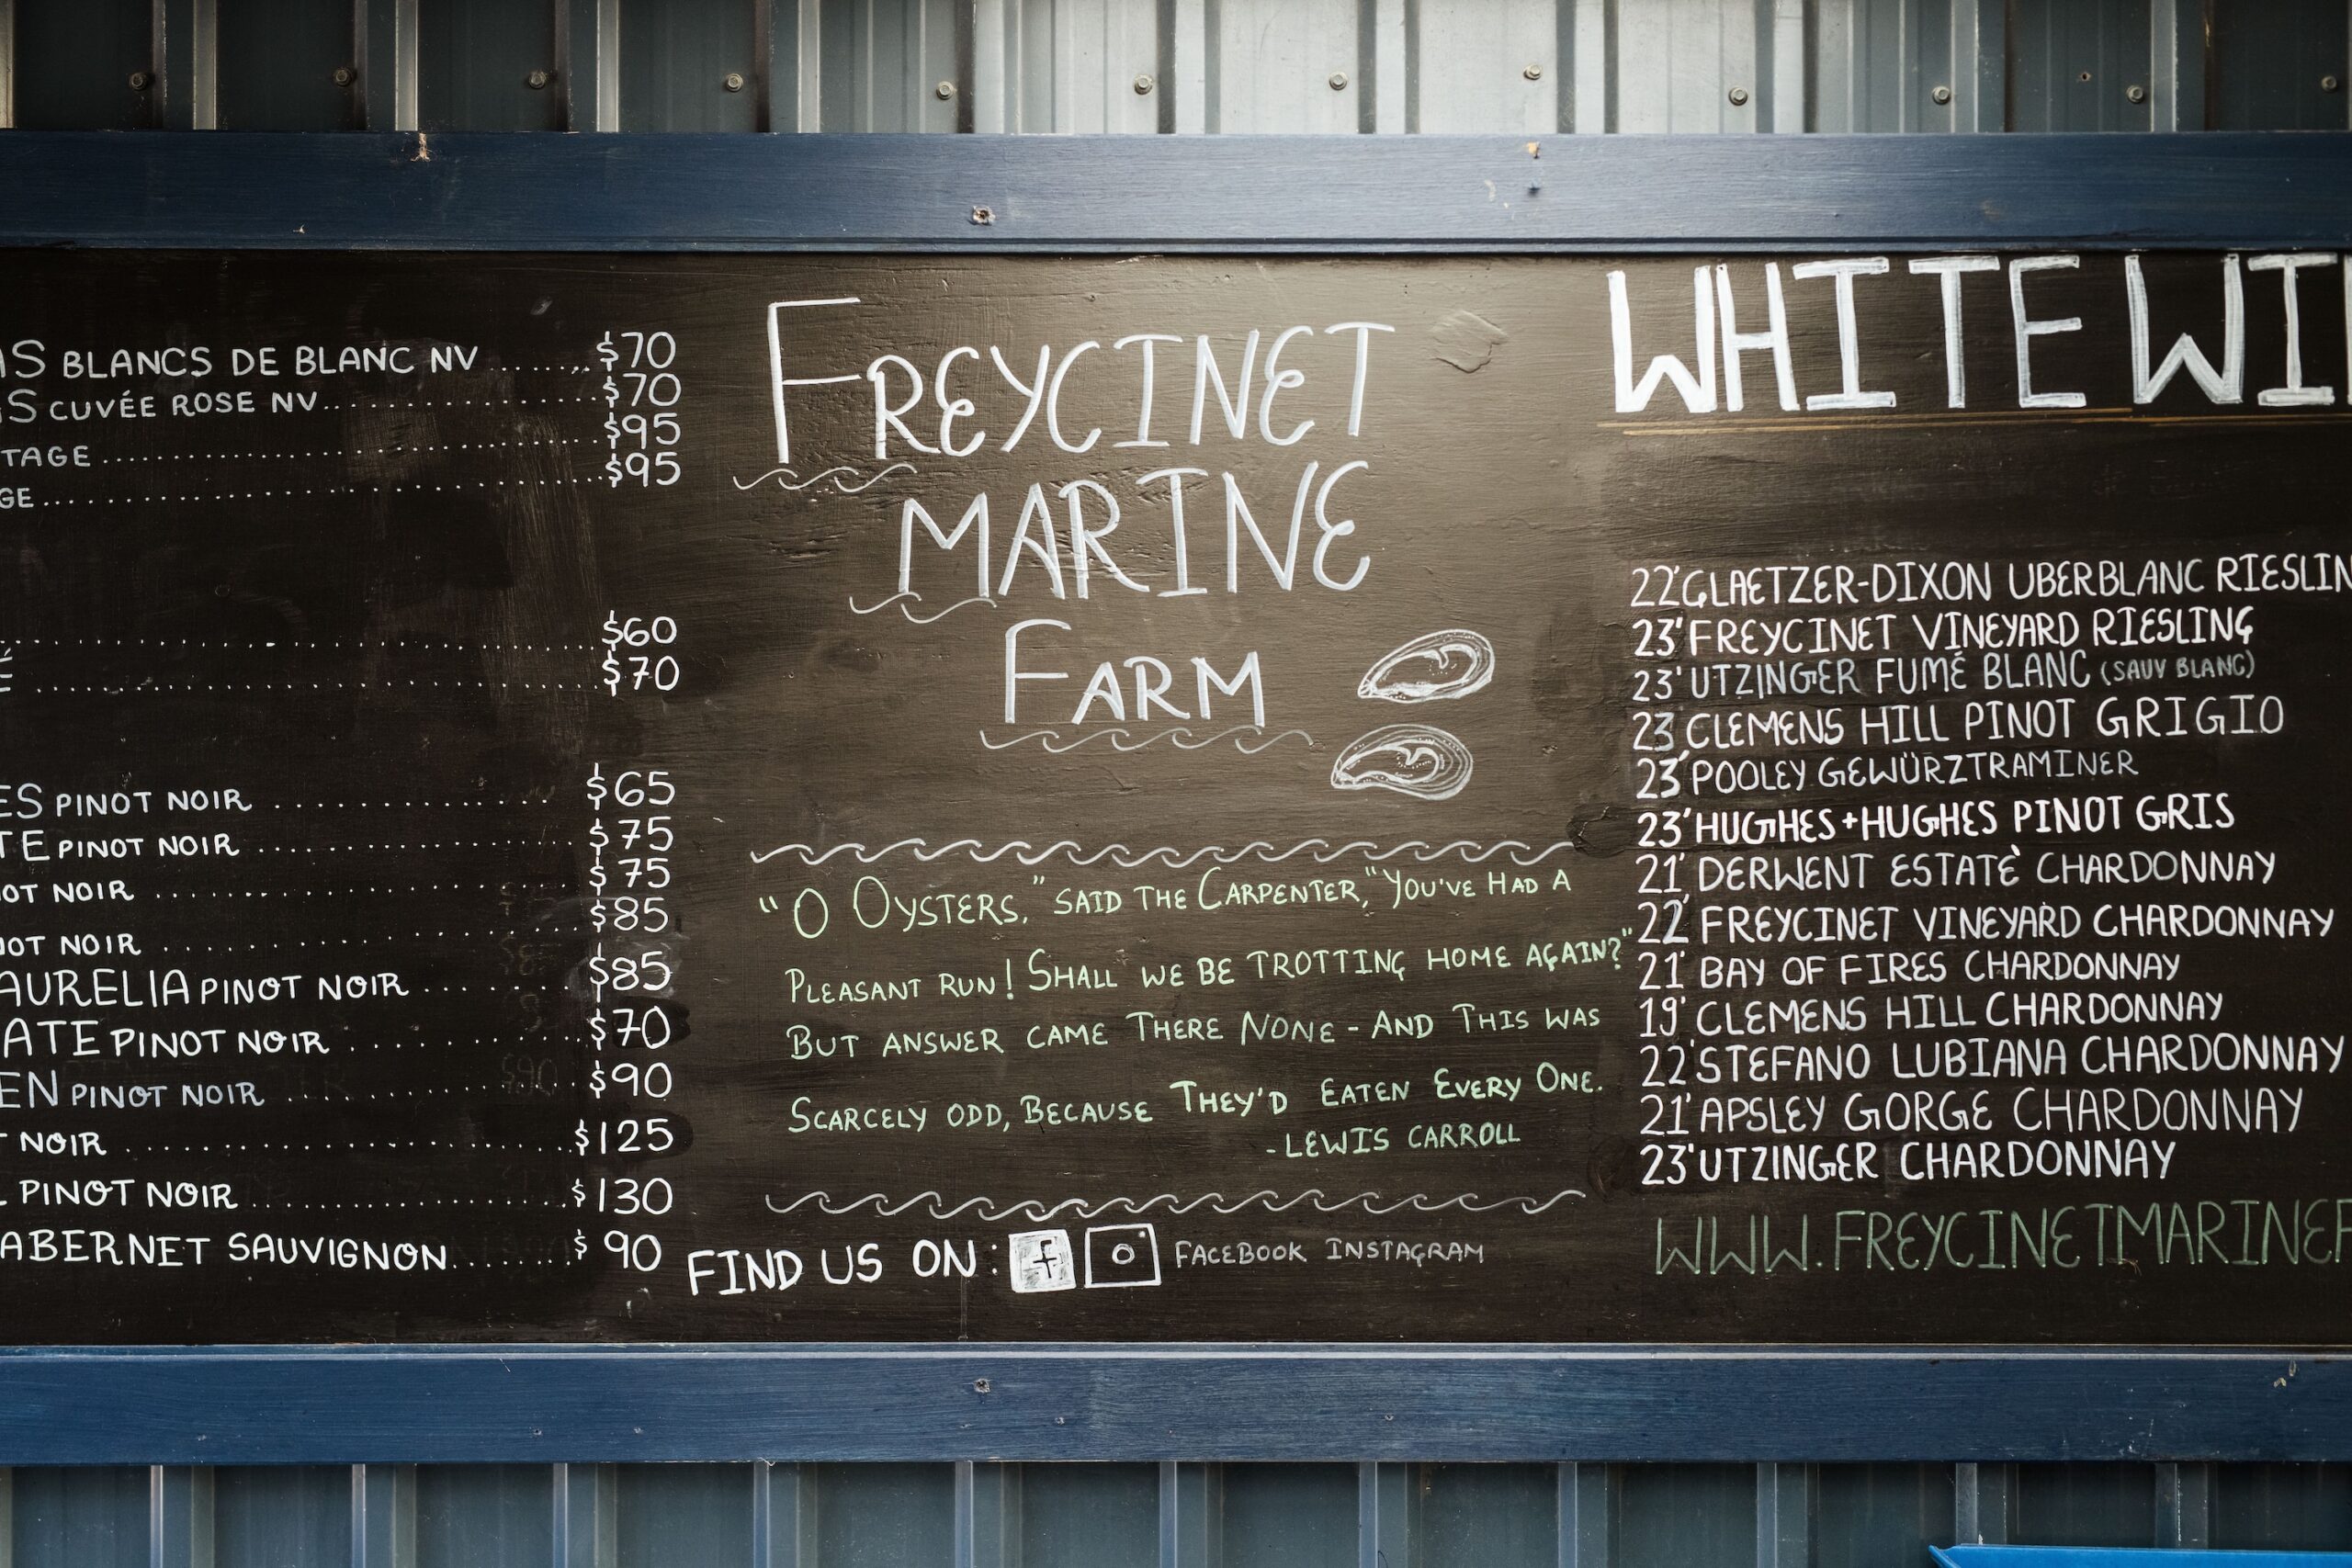 AS BLANCS DE BLANC NV ........ $70
S CUVÉE ROSE NV................ $70
TAGE ................ $95
GE ................ $95
................ $60
É ................ $70
ES PINOT NOIR ................ $65
TE PINOT NOIR ................ $75
OT NOIR ................ $75
NOT NOIR ................ $85
AURELIA PINOT NOIR ........ $85
ATE PINOT NOIR ............ $70
EN PINOT NOIR ................ $90
T NOIR ................ $125
PINOT NOIR ................ $130
ABERNET SAUVIGNON........ $90
FREYCINET
MARINE
FARM
"O OYSTERS," SAID THE CARPENTER, "YOU'VE HAD A
PLEASANT RUN! SHALL WE BE TROTTING HOME AGAIN?"
BUT ANSWER CAME THERE NONE - AND THIS WAS
SCARCELY ODD, BECAUSE THEY'D EATEN EVERY ONE.
- LEWIS CARROLL
FIND US ON: f FACEBOOK INSTAGRAM
WHITE WI
22' GLAETZER-DIXON UBERBLANC RIESLIN
23' FREYCINET VINEYARD RIESLING
23' UTZINGER FUMÉ BLANC (SAUV BLANC)
23 CLEMENS HILL PINOT GRIGIO
23' POOLEY GEWÜRZTRAMINER
23' HUGHES + HUGHES PINOT GRIS
21' DERWENT ESTATÈ CHARDONNAY
22' FREYCINET VINEYARD CHARDONNAY
21' BAY OF FIRES CHARDONNAY
19' CLEMENS HILL CHARDONNAY
22' STEFANO LUBIANA CHARDONNAY
21' APSLEY GORGE CHARDONNAY
23' UTZINGER CHARDONNAY
WWW.FREYCINETMARINEF